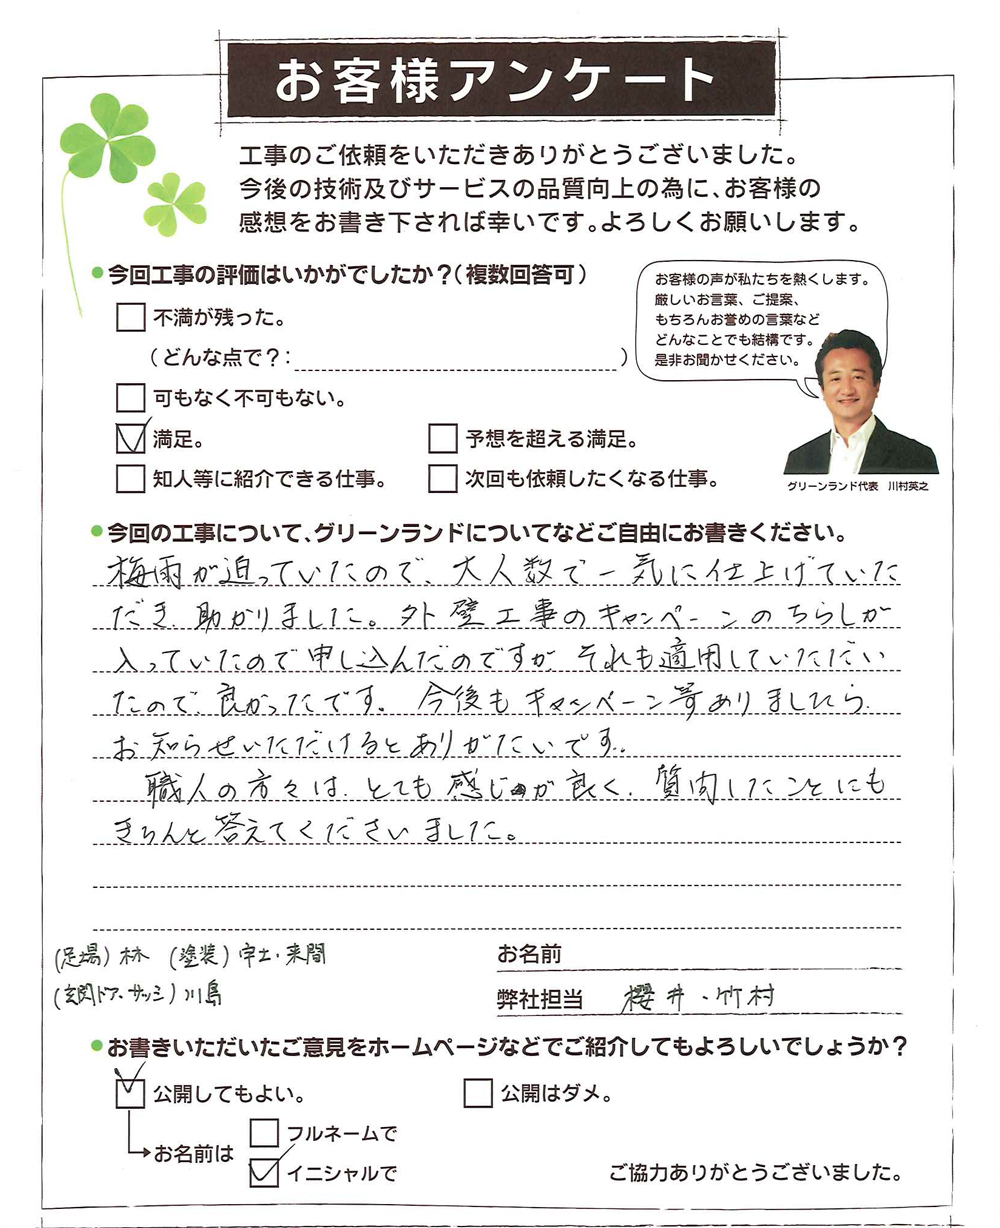 お客様アンケート
工事のご依頼をいただきありがとうございました。
今後の技術及びサービスの品質向上の為に、お客様の
感想をお書き下されば幸いです。よろしくお願いします。
●今回工事の評価はいかがでしたか？（複数回答可）
お客様の声が私たちを熱くします。
厳しいお言葉、ご提案、
もちろんお誉めの言葉など
どんなことでも結構です。
是非お聞かせください。
不満が残った。
（どんな点で？：　）
可もなく不可もない。
満足。　予想を超える満足。
知人等に紹介できる仕事。　次回も依頼したくなる仕事。
グリーンランド代表　川村英之
●今回の工事について、グリーンランドについてなどご自由にお書きください。
梅雨が迫っていたので、大人数で一気に仕上げていた
だき、助かりました。外壁工事のキャンペーンのちらしが
入っていたので申し込んだのですが、それも適用していただい
たので、良かったです。今後もキャンペーン等ありましたら、
お知らせいただけるとありがたいです。
職人の方々は、とても感じが良く、質問したことにも
きちんと答えてくださいました。
(足場) 林　(塗装) 宇土・来間
お名前
(玄関ドア・サッシ) 川島
弊社担当　櫻井・竹村
●お書きいただいたご意見をホームページなどでご紹介してもよろしいでしょうか？
公開してもよい。　公開はダメ。
フルネームで
お名前は
イニシャルで
ご協力ありがとうございました。